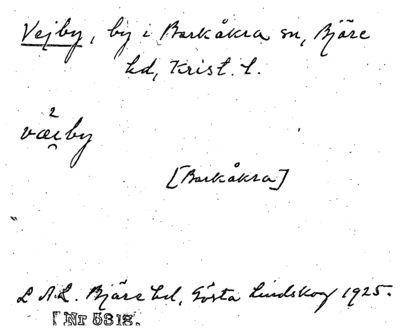 Vejby, by i Barkåkra sn, Bjäre
hd, Krist. l.
2
væi̯by
[Barkåkra]
L.A.L. Bjäre hd, Gösta Lindskog 1925.
[Nr 5818.